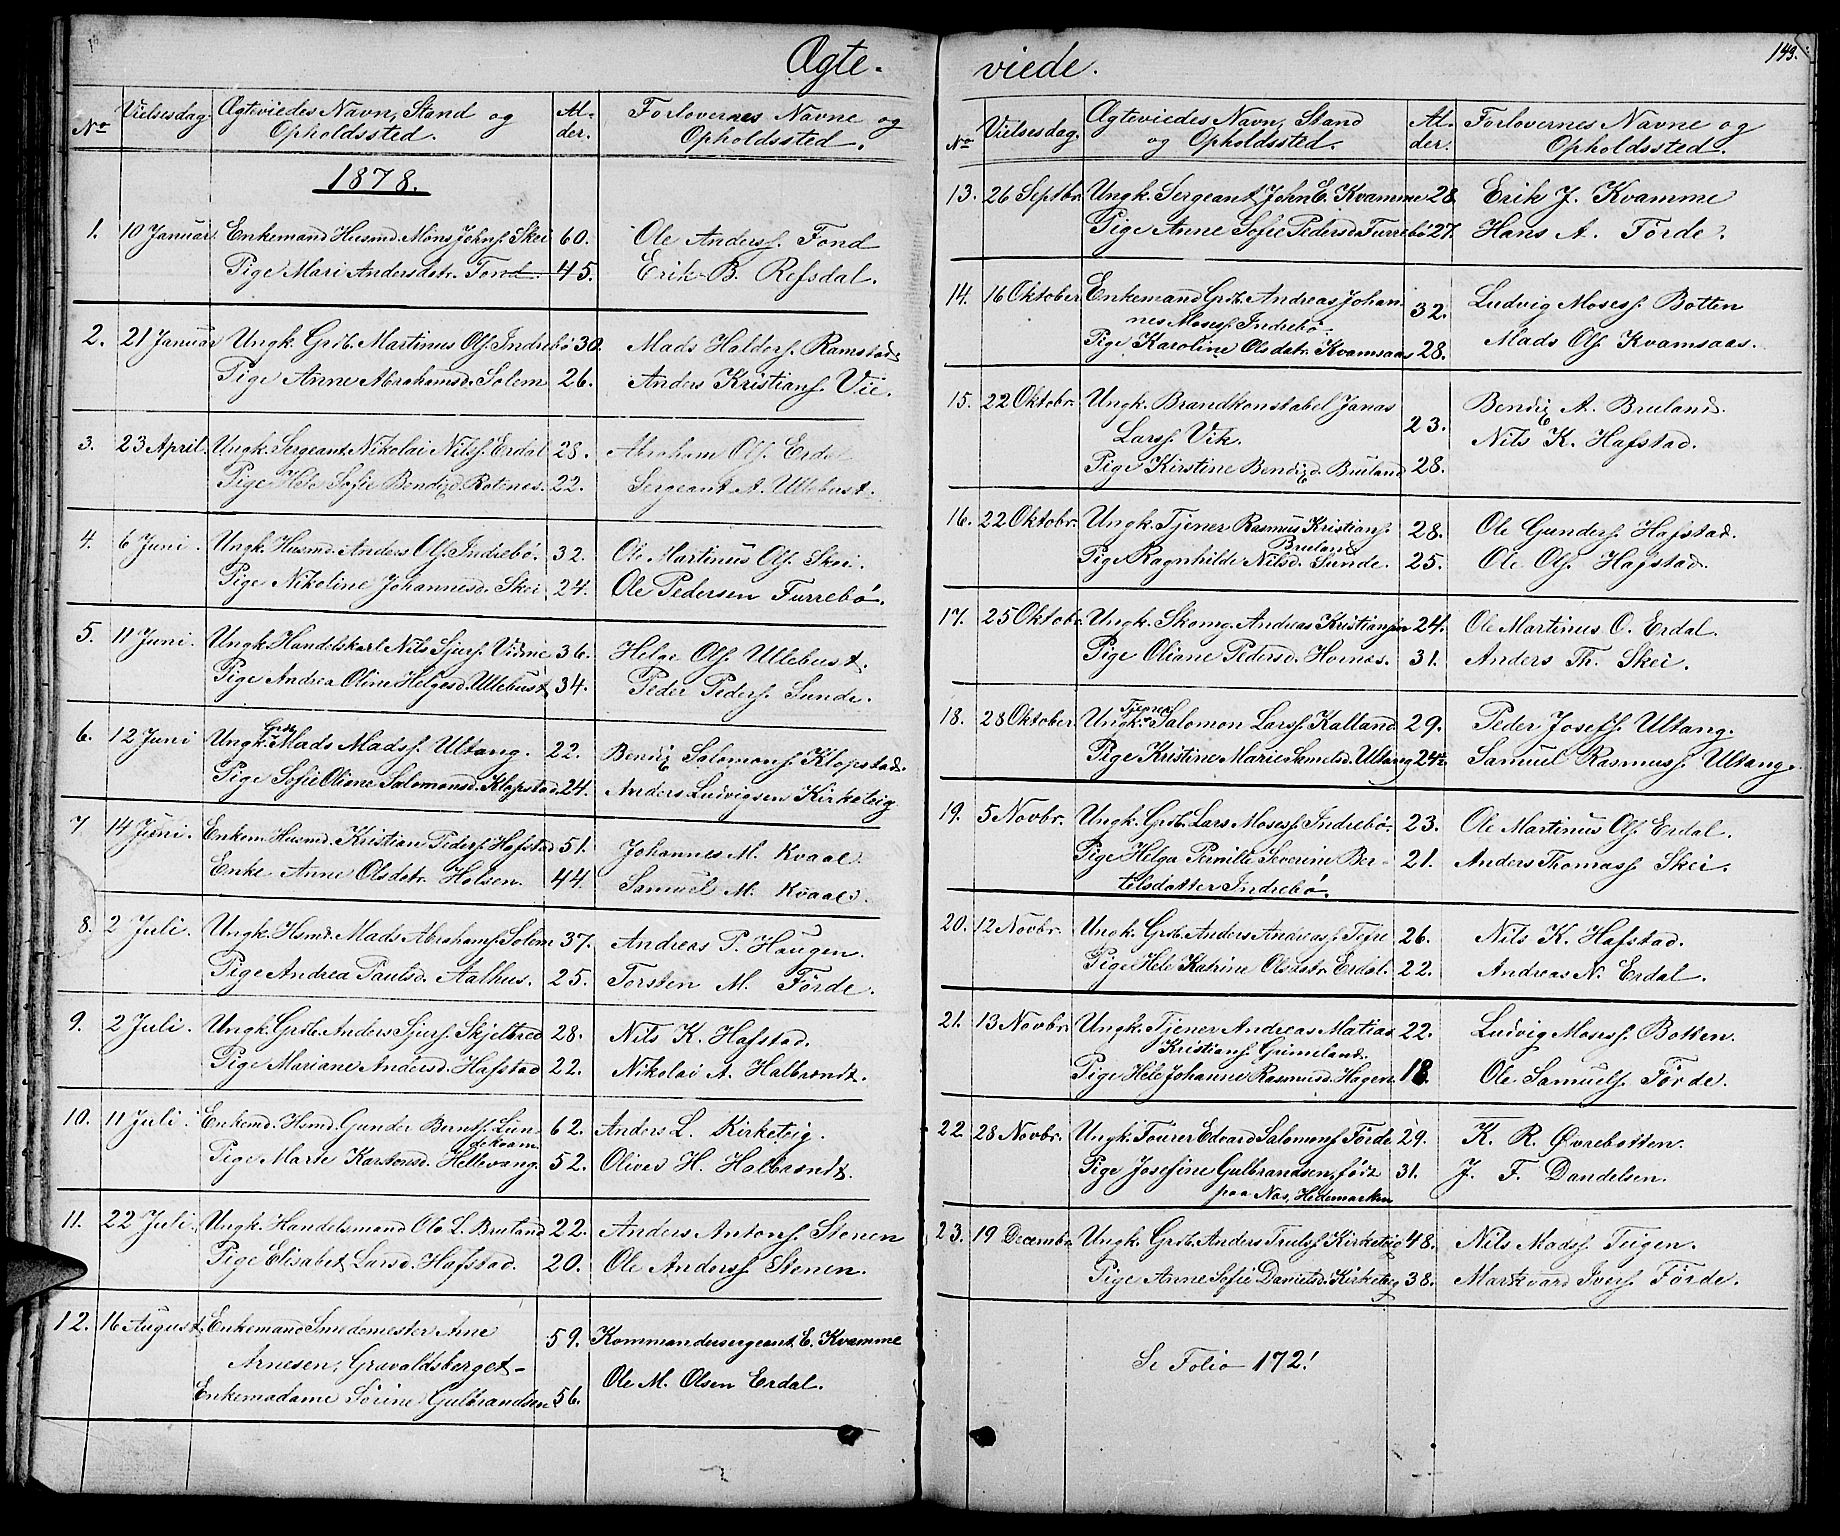 Ægte-
No Vielsesdag. Ægteviedes Navn, Stand og Opholdssted. Al-der. Forlovernes Navne og Opholdssted.
1878.
1. 10 Januar. Enkemand Husmd. Möns Johns. Skei 60. Ole Anderss. Fond
Pige Mari Andersdatr. Fond. 45. Erik B. Refsdal.
2. 21 Januar Ungk. Grdb. Martinus Ols. Indrebö 30. Mads Haldors. Ramstad.
Pige Anne Abrahamsd. Solem 26. Anders Kristians. Vie.
3. 23 April. Ungk. Sergeant Nikolai Nilss. Erdal 28. Abraham Ols. Erdal
Pige Hele Sofie Bendixd. Rotenes. 22. Sergeant A. Ullebust.
4. 6 Juni. Ungk. Husmd. Anders Ols. Indrebö. 32. Ole Martinus Ols. Skei.
Pige Nikoline Johannesd. Skei 24. Ole Pedersen Furrebö.
5. 11 Juni. Ungk. Handelskarl Nils Sjurs. Vidme 36. Helge Ols. Ullebust.
Pige Andrea Oline Helgesd. Ullebust 34. Peder Peders. Sunde.
6. 12 Juni Ungk. Grdb. Mads Madss. Ultang. 22. Bendix Salomons. Klopstad.
Pige Sofie Oliane Salomonsd. Klopstad 24. Anders Ludvigsen Kirketeig
7 14 Juni. Enkem. Husmd. Kristian Peders. Hafstad 51. Johannes M. Kvaal.
Enke Anne Olsdatr. Holsen. 44. Samuel M. Kvaal.
8. 2 Juli. Ungk. Hsmd. Mads Abrahams. Solem 37. Andreas P. Haugen.
Pige Andrea Paulsd. Aalhus. 25. Torsten M. Förde.
9. 2 Juli. Ungk. Grdb. Anders Sjurs. Skjelbred 28. Nils K. Hafstad.
Pige Mariane Andersd. Hafstad 22. Nikolai A. Halbrendt.
10. 11 Juli. Enkemd. Hsmd. Gunder Bernss. Lun- 62. Anders L. Kirketeig.
dekvam
Pige Marte Karstensd. Hellevang. 52. Oliver H. Halbrendt.
11. 22 Juli. Ungk. Handelsmand Ole L. Bruland 22. Anders Antons. Stenen
Pige Elisabet Larsd. Hafstad. 20. Ole Anderss. Stenen.
12. 16 August. Enkemand Smedemester Arne 59. Kommandersergeant E. Kvamme
Arnesen, Gravaldsberget- Ole M. Olsen Erdal.
Enkemadame Sörine Gulbrandsen 56.
viede.
149.
No Vielsesdag. Ægteviedes Navn, Stand og Opholdssted. Al-der. Forlovernes Navne og Opholdssted.
13. 26 Septbr. Ungk. Sergeant John E. Kvamme 28 Erik J. Kvamme
Pige Anne Sofie Pedersd. Furrebö 27. Hans A. Förde.
14. 16 Oktober. Enkemand Grdb. Andreas Johan 32. Ludvig Moses. Botten
nes Moses. Indrebö
Pige Karoline Olsdatr. Kvamsaas 28. Mads Ols. Kvamsaas.
15. 22 Oktobr. Ungk. Brandkonstabel Janas 23. Bendix A. Bruland.
Larss. Vik. Nils K. Hafstad.
Pige Kirstine Bendixd. Bruland 28.
16. 22 Oktobr. Ungk. Tjener Rasmus Kristians. 28. Ole Gunders. Hafstad.
Bruland
Pige Ragnhilde Nilsd. Sunde. 25. Ole Ols. Hafstad.
17. 25 Oktobr. Ungk. Skomg. Andreas Kristiansen 24. Ole Martinus O. Erdal.
Pige Oliane Pedersd. Hornes. 31. Anders Th. Skei.
18. 28 Oktober. Ungk. Tjener Salomon Larss. Kalland 29. Peder Josefs. Ultang.
Pige Kristine Marie Samelsd. Ultang 24½ Samuel Rasmuss. Ultang.
19. 5 Novbr. Ungk. Grdb. Lars Moses. Indrebö. 23. Ole Martinus Ols. Erdal.
Pige Helga Pernille Severine Ber- 21. Anders Thomass. Skei.
telsdatter Indrebö.
20. 12 Novbr. Ungk. Grdb. Anders Andreass. Tefre 26. Nils K. Hafstad.
Pige Hele Katrine Olsdatr. Erdal. 22. Andreas N. Erdal.
21. 13 Novbr. Ungk. Tjener Andreas Matias 22. Ludvig Moses. Botten.
Kristians. Gimeland.
Pige Hele Johanne Rasmusd. Hagen. 18. Ole Samuels. Förde.
22. 28 Novbr. Ungk. Tourer Edvard Salomons. Förde 29. K. R. Øvrebotten.
Pige Josefine Gulbrandsen, födt 31. J. F. Dandelsen.
paa Næs, Hedemarken
23. 19 Decembr. Ungk. Grdb. Anders Trulss. Kirketeig 48. Nils Madss. Teigen.
Pige Anne Sofie Danielsd. Kirketeig 38. Markvard Ivers. Förde.
Se Folio 172!